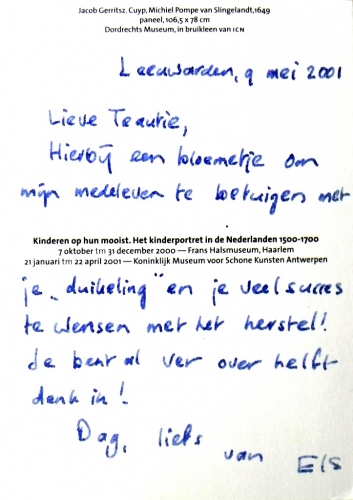 Jacob Gerritsz. Cuyp, Michiel Pompe van Slingelandt,1649
paneel, 106,5 x 78 cm
Dordrechts Museum, in bruikleen van ICN
Leeuwarden, 9 mei 2001
Lieve
Hierbij een bloemetje om
mijn medeleven te betuigen met
Kinderen op hun mooist. Het kinderportret in de Nederlanden 1500-1700
7 oktober tm 31 december 2000 — Frans Halsmuseum, Haarlem
21 januari tm 22 april 2001 — Koninklijk Museum voor Schone Kunsten Antwerpen
je „duikeling" en je veel succes
te wensen met het herstel!
Je bent al ver over helft
denk ik!
Dag, liefs
van Els